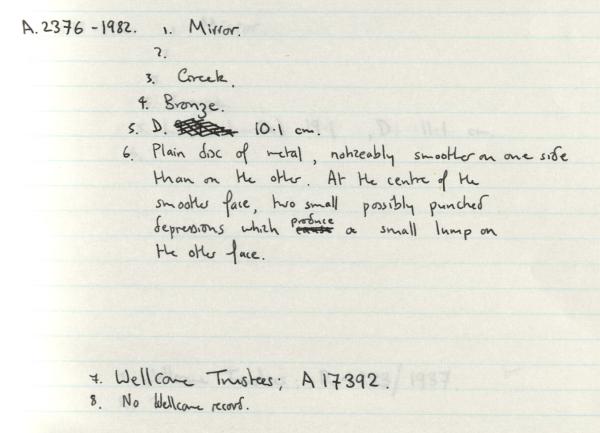 A.2376-1982. 1. Mirror.
2.
3. Greek.
4. Bronze.
5. D. 10.1 cm.
6. Plain disc of metal, noticeably smoother on one side
than on the other. At the centre of the
smoother face, two small possibly punched
depressions which produce a small lump on
the other face.
7. Wellcome Trustees; A 17392.
8. No Wellcome record.